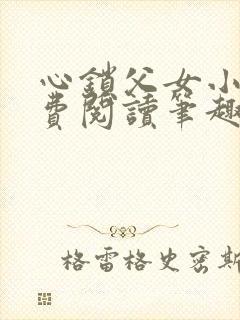 心鎖父女小
費閱讀筆趣
格雷格史密斯